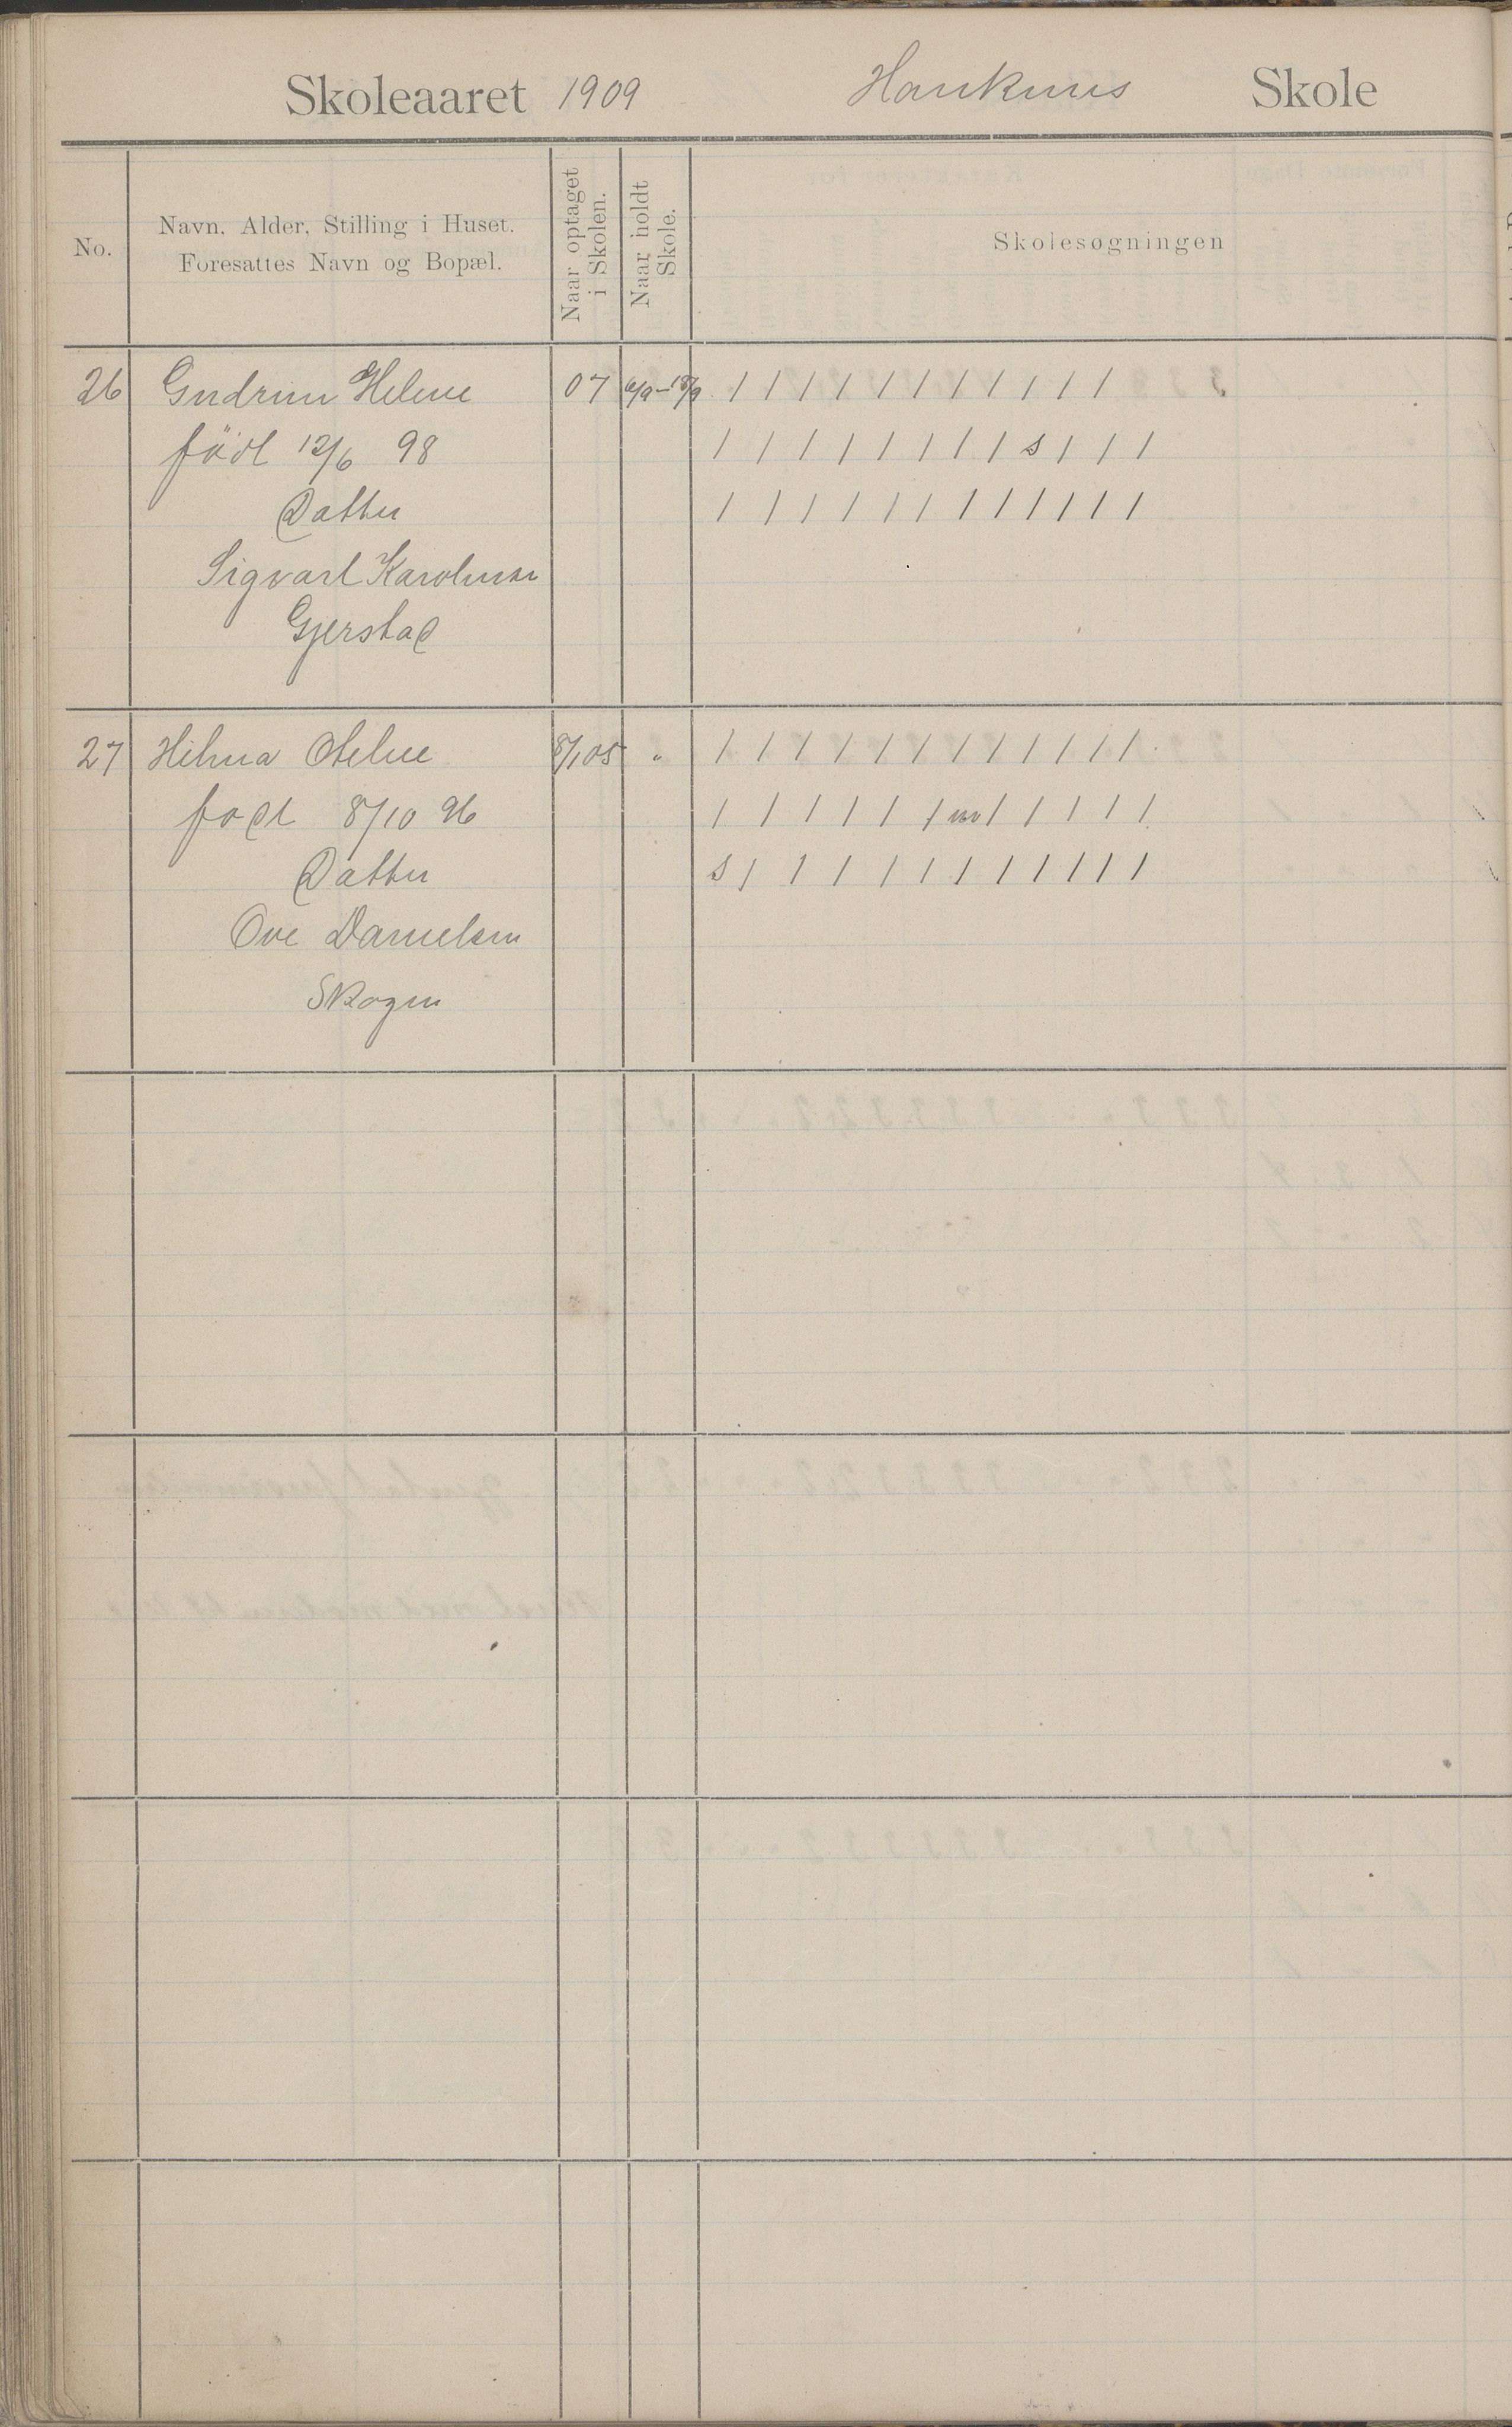 Skoleaaret 1909 Hauknes Skole
No.
Navn, Alder, Stilling i Huset.
Foresattes Navn og Bopæl.
Naar optaget
i Skolen.
Naar holdt
Skole.
Skolesøgningen
26 Gudrun Helene 07 6/9-18/9 / / / / / / / / / / /
født 12/6 98 / / / / / / / / s / / /
Datter / / / / / / / / / / / /
Sigvart Karolinsen
Gjerstad
27 Hilma Oteline 8/1 05 " / / / / / / / / / / / /
født 8/10 96 / / / / / / / / / / /
Datter s / / / / / / / / / / /
Ove Danielsen
Skogen